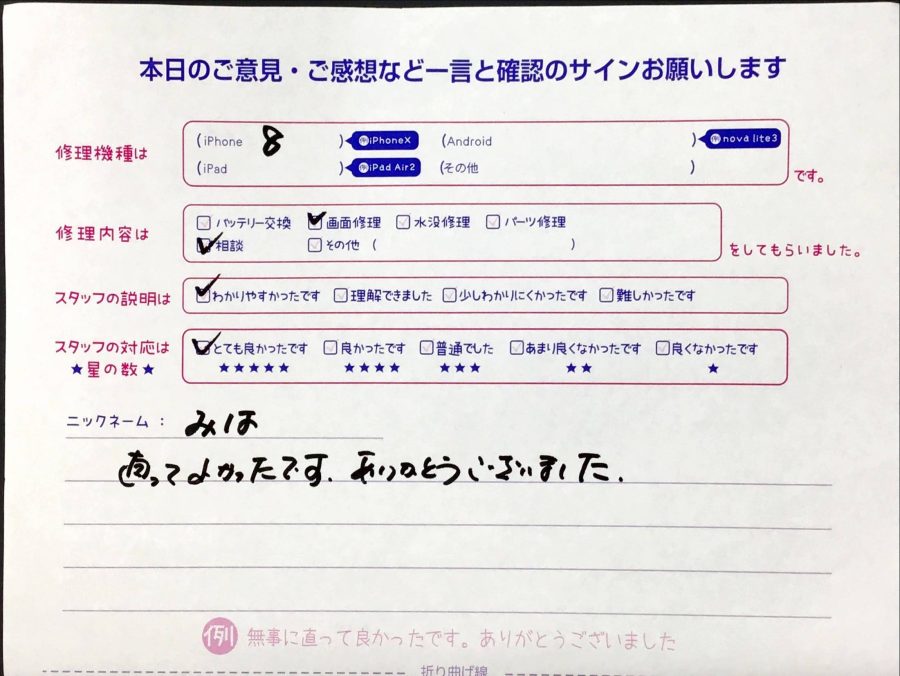 本日のご意見・ご感想など一言と確認のサインお願いします
修理機種は
(iPhone 8 ) 例 iPhoneX (Android ) 例 nova lite3
(iPad ) 例 iPad Air2 (その他 )
です。
修理内容は
バッテリー交換 ✓画面修理 水没修理 パーツ修理
✓相談 その他 ( )
をしてもらいました。
スタッフの説明は ✓わかりやすかったです 理解できました 少しわかりにくかったです 難しかったです
スタッフの対応は ✓とても良かったです 良かったです 普通でした あまり良くなかったです 良くなかったです
★星の数★ ★★★★★ ★★★★ ★★★ ★★ ★
ニックネーム : みほ
直ってよかったです. ありがとうございました.
例 無事に直って良かったです。ありがとうございました
折り曲げ線